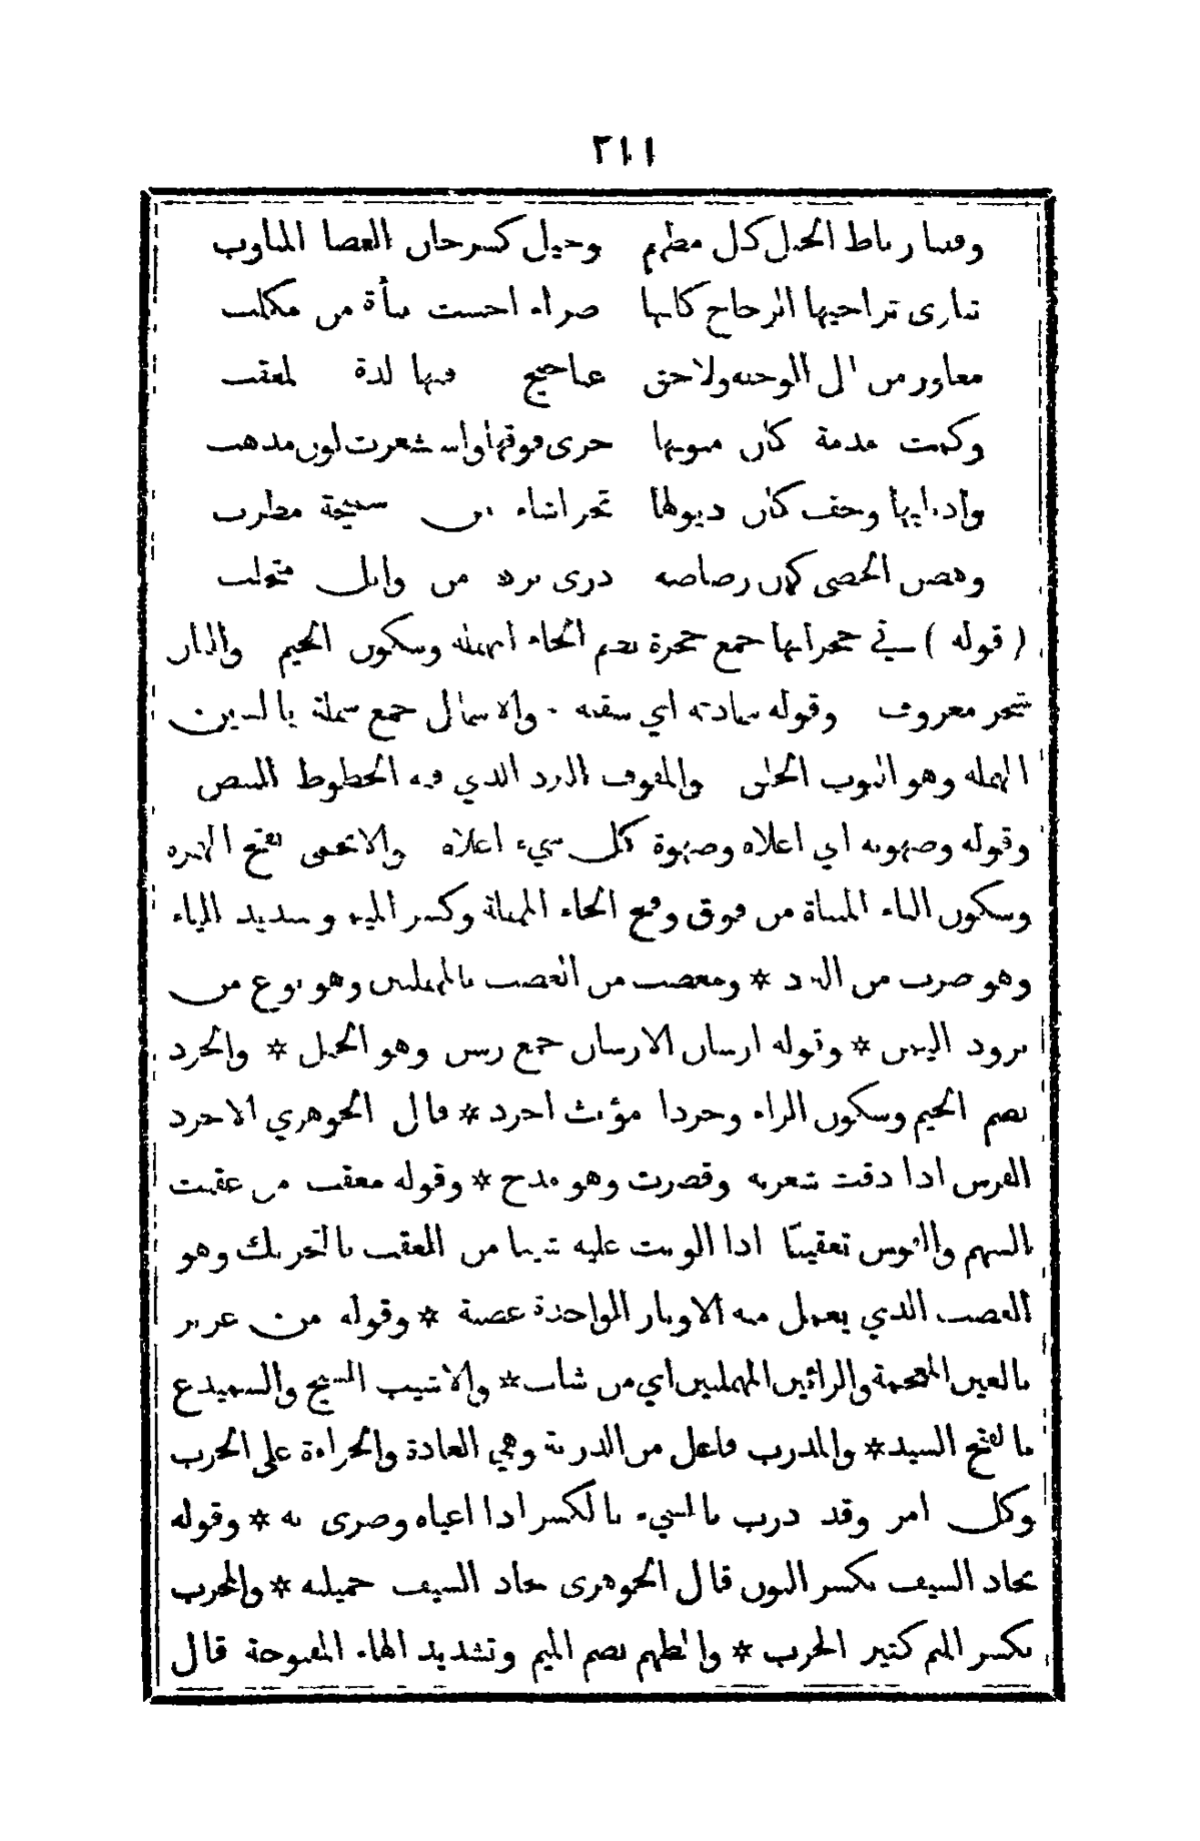 ٢١١
وفينا رباط الخيل كل مطهم وخيل كسرحان الغضا المتأوب
تبارى تراخيها الزجاج كانها ضراء احست نبأة من مكلب
مغاوير من ال الوجيه ولاحق عناجيج فيها لذة لمعقب
وكمت مدمة كأن متونها جرى فوقها واستشعرت لون مذهب
وأذنابها وحف كأن ذيولها تجر اشاء من سميحة مطرب
وهصن الحصى كأن رضاضه ذرى برد من وابل متحلب
( قوله ) في حجراتها جمع حجرة بضم الحاء المهملة وسكون الجيم والبان
شجر معروف وقوله سماوته اي سقفه . والاسمال جمع سملة بالسين
المهملة وهو الثوب الخلق والمفوف البرد الذي فيه الخطوط البيض
وقوله وصهوته اي اعلاه وصهوة كل شيء اعلاه والاتحمى بفتح الهمزة
وسكون التاء المثناة من فوق وفتح الحاء المهملة وكسر الميم وتشديد الياء
وهو ضرب من البرد * ومعصب من العصب بالمهملتين وهو نوع من
برود اليمن * وقوله ارسان الارسان جمع رسن وهو الحبل * والجرد
بضم الجيم وسكون الراء وجردا مؤنث اجرد * قال الجوهري الاجرد
الفرس اذا دقت شعرته وقصرت وهو مدح * وقوله معقب من عقبت
السهم والقوس تعقيبًا اذا الويت عليه شيئا من العقب بالتحريك وهو
العصب الذي يعمل منه الاوتار الواحدة عصبة * وقوله من غرير
بالغين المعجمة والرائين المهملتين اي من شاب * والاشيب الشيخ والسميدع
بالفتح السيد * والمدرب فاعل من الدربة وهي العادة والجراءة على الحرب
وكل امر وقد درب بالشيء بالكسر اذا اعياه وضرى به * وقوله
بحاد السيف بكسر النون قال الجوهرى نجاد السيف حميلته * والمحرب
بكسر الميم كثير الحرب * والمطهم بضم الميم وتشديد الهاء المفتوحة قال